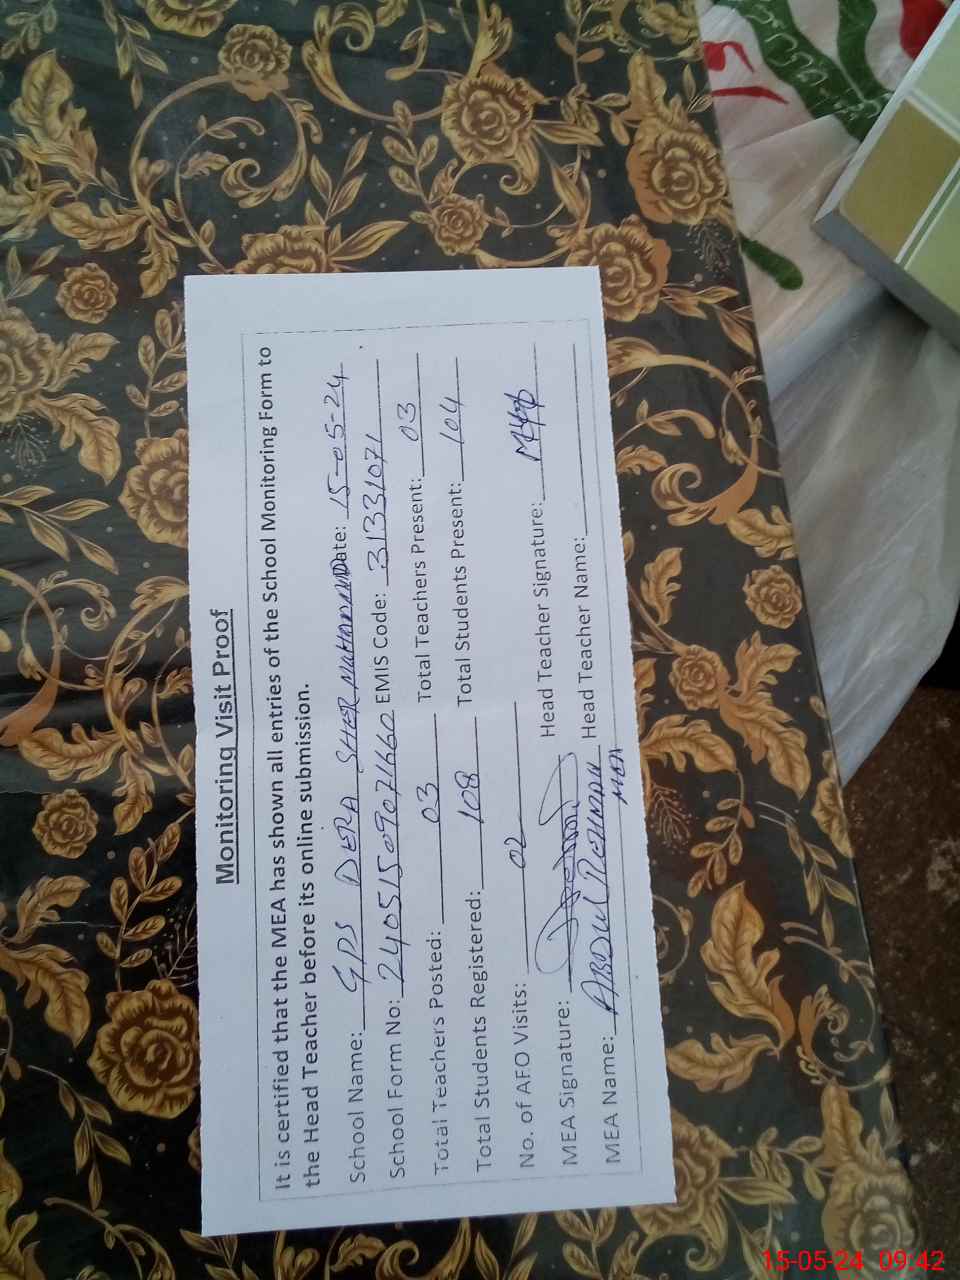 Monitoring Visit Proof
It is certified that the MEA has shown all entries of the School Monitoring Form to
the Head Teacher before its online submission.
School Name: GPS DERA SHER MUHAMMAD Date: 15-05-24
School Form No: 24051509071660 EMIS Code: 31331071
Total Teachers Posted: 03 Total Teachers Present: 03
Total Students Registered: 108 Total Students Present: 104
No. of AFO Visits: 02
MEA Signature: Head Teacher Signature:
MEA Name: ABDUL REHMAN Head Teacher Name:
MEA
15-05-24 09:42